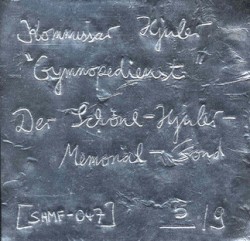 Kommissar Hjuler
"Gymnopedienst"
Der Schöne-Hjuler-
Memorial-Fond
[SHMF-047] 5/9